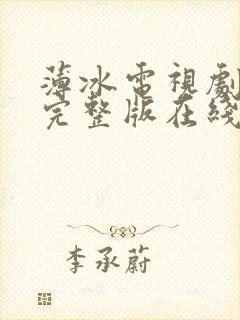 薄冰電視劇
完整版在綫
李承蔚